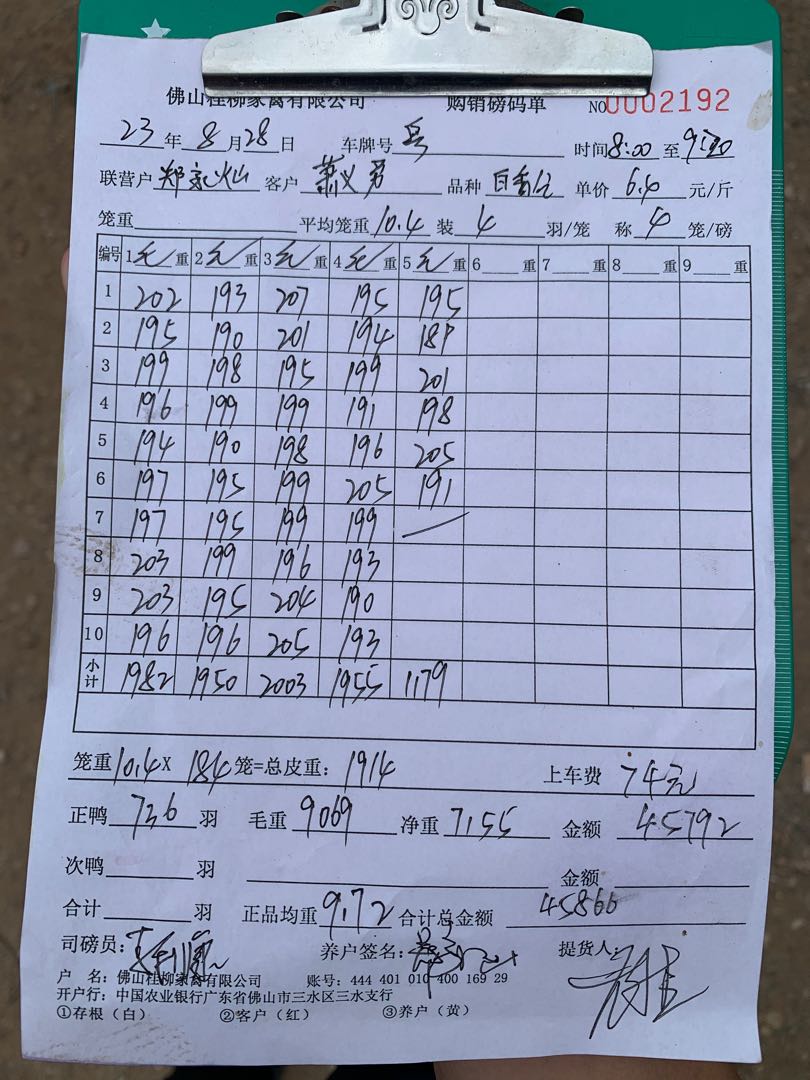 佛山桂柳家禽有限公司 购销磅码单 NO0002192
23年8月28日 车牌号 时间8:00至9:20
联营户 客户 品种 单价6.4元/斤
笼重 平均笼重10.4装4羽/笼 称4笼/磅
编号 1毛重 2毛重 3毛重 4毛重 5毛重 6重 7重 8重 9重
1 202 193 207 195 195
2 195 190 201 194
3 199 198 195 199 201
4 196 199 199 191 198
5 194 190 198 196 205
6 197 195 199 205 191
7 197 195 199 199 —
8 203 199 196 193
9 203 195 204 190
10 196 196 205 193
小计 1982 1950 2003 1955 1179
笼重10.4X 184笼=总皮重：1914 上车费 74元
正鸭 736羽 毛重 9069 净重 7155 金额 45792
次鸭 羽 金额
合计 羽 正品均重 9.72 合计总金额 45866
司磅员： 养户签名： 提货人：
户 名：佛山桂柳家禽有限公司 账号：444 401 010 400 169 29
开户行：中国农业银行广东省佛山市三水区三水支行
①存根（白） ②客户（红） ③养户（黄）